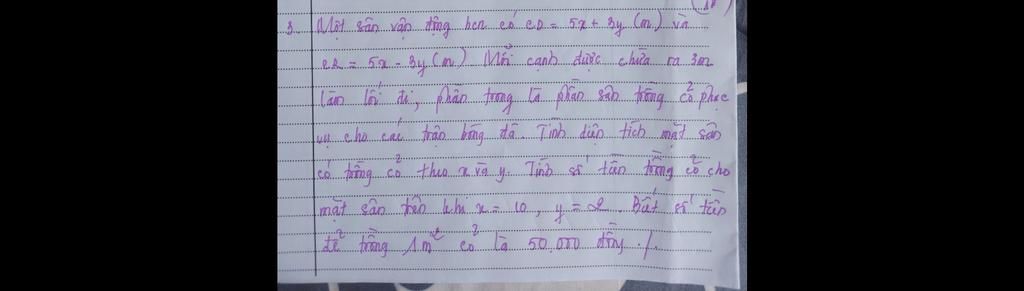 3. Một sân vận động hcn có CD = 5x + 3y (m) và
CR = 5x - 3y (m) Mỗi cạnh được chừa ra 3m
làm lối đi, phần trong là phần sân trồng cỏ phục
vụ cho các trận bóng đá. Tính diện tích mặt sân
cỏ trồng cỏ theo x và y. Tính số tiền trồng cỏ cho
mặt sân trên khi x = 10, y = 2. Biết số tiền
để trồng 1m² cỏ là 50.000 đồng ./.